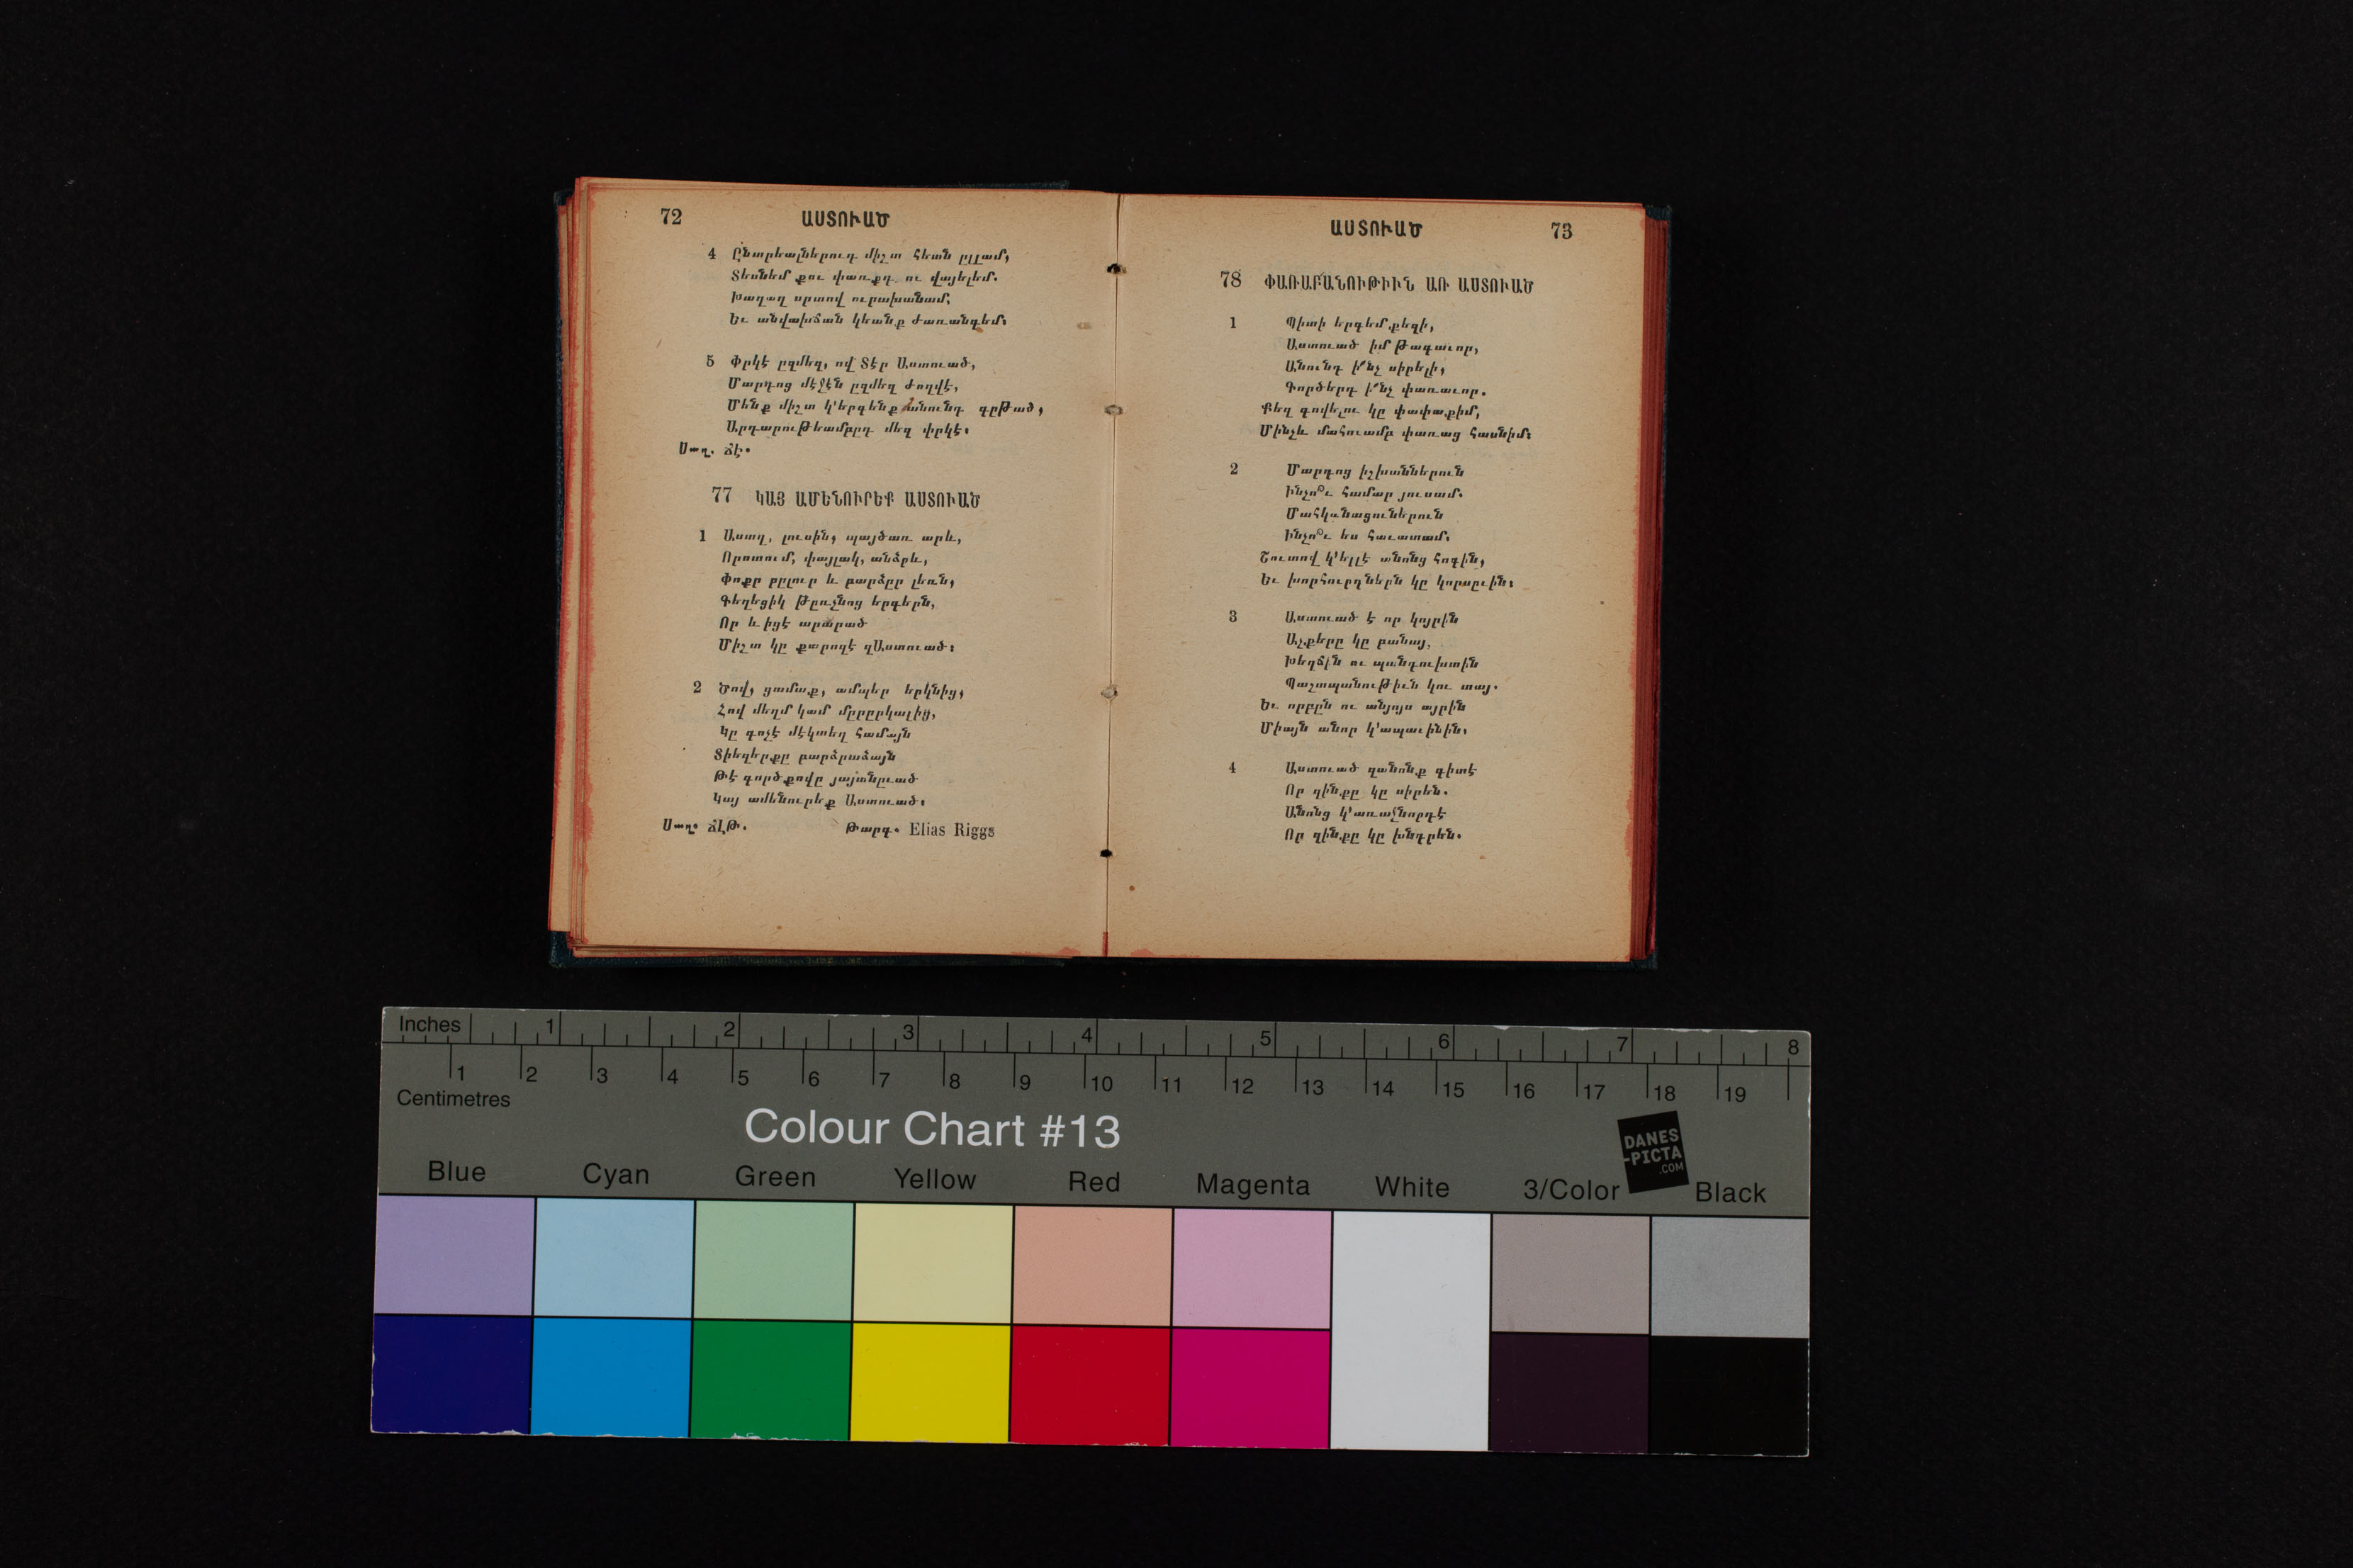 72 ԱՍՏՈՒԱԾ
4 Ընտրեալներուդ միշտ հետն ըլլամ,
Տեսնեմ քու փառքդ ու վայելեմ.
Խաղաղ սրտով ուրախանամ,
Եւ անվախճան կեանք ժառանգեմ։
5 Փրկէ ըզմեզ, ով Տէր Աստուած,
Մարդոց մէջէն ըզմեզ ժողվէ,
Մենք միշտ կ'երգենք անունդ գըթած,
Արդարութեամբըդ մեզ փրկէ։
Սաղ. ՃԷ.
77 ԿԱՅ ԱՄԵՆՈՒՐԵՔ ԱՍՏՈՒԱԾ
1 Աստղ, լուսին, պայծառ արև,
Որոտում, փայլակ, անձրև,
Փոքր բըլուր և բարձըր լեռն,
Գեղեցիկ թըռչնոց երգերն,
Որ և իցէ արարած
Միշտ կը քարոզէ զԱստուած։
2 Ծով, ցամաք, ամպեր երկնից,
Հով մեղմ կամ մըրըրկալից,
Կը գոչէ մէկտեղ համայն
Տիեզերքը բարձրաձայն
Թէ գործքովը յայտնըւած
Կայ ամենուրեք Աստուած։
Սաղ. ՃԼԹ. Թարգ. Elias Riggs
ԱՍՏՈՒԱԾ 73
78 ՓԱՌԱԲԱՆՈՒԹԻՒՆ ԱՌ ԱՍՏՈՒԱԾ
1 Պիտի երգեմ քեզի,
Աստուած իմ թագաւոր,
Անունդ ի՜նչ սիրելի,
Գործերդ ի՜նչ փառաւոր.
Քեզ գովելու կը փափաքիմ,
Մինչև մահուամբ փառաց հասնիմ։
2 Մարդոց իշխաններուն
Ինչո՞ւ համար յուսամ.
Մահկանացուներուն
Ինչո՞ւ ես հաւատամ.
Շուտով կ'ելլէ անոնց հոգին,
Եւ խորհուրդներն կը կորսըւին։
3 Աստուած է որ կոյրին
Աչքերը կը բանայ,
Խեղճին ու պանդուխտին
Պաշտպանութիւն կու տայ.
Եւ որբըն ու անյոյս այրին
Միայն անոր կ'ապաւինին։
4 Աստուած զանոնք գիտէ
Որ զինքը կը սիրեն.
Անոնց կ'առաջնորդէ
Որ զինքը կը խնդրեն.
Inches 1 2 3 4 5 6 7 8
1 2 3 4 5 6 7 8 9 10 11 12 13 14 15 16 17 18 19
Centimetres
Colour Chart #13
DANES
-PICTA
.COM
Blue Cyan Green Yellow Red Magenta White 3/Color Black